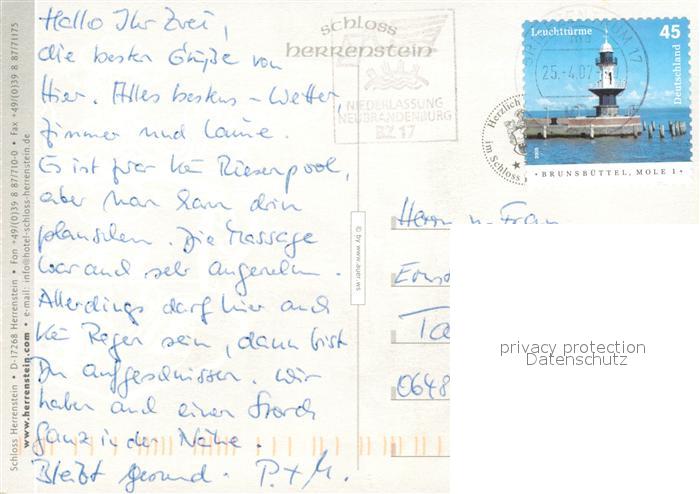 Hallo Ihr Zwei,
die besten Grüße von
hier. Alles bestens – Wetter,
Zimmer und Laune.
Es ist zwar kein Riesenpool,
aber man kann drin
planschen. Die Massage
war auch sehr angenehm.
Allerdings darf hier auch
kein Regen sein, dann bist
Du aufgeschmissen. Wir
haben auch einen Storch
ganz in der Nähe.
Bleibt gesund. P. + M.
Schloss Herrenstein • D-17268 Herrenstein • Fon +49/(0)39 8 87/710-0 • Fax +49/(0)39 8 87/71175
www.herrenstein.com • e-mail: info@hotel-schloss-herrenstein.de
schloss
herrenstein
NIEDERLASSUNG
NEUBRANDENBURG
BZ 17
25.-4.07
Herzlich
im Schloss
Leuchttürme
45
Deutschland
• BRUNSBÜTTEL, MOLE 1 •
© by www.auer.ws
Herrn u. Frau
Ernst
Ta
0648
privacy protection
Datenschutz